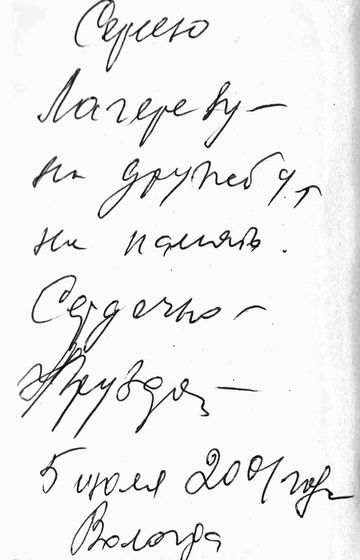 Сергею
Лагереву –
на дружбу,
на память.
Сердечно –
5 июля 2001 года
Вологда